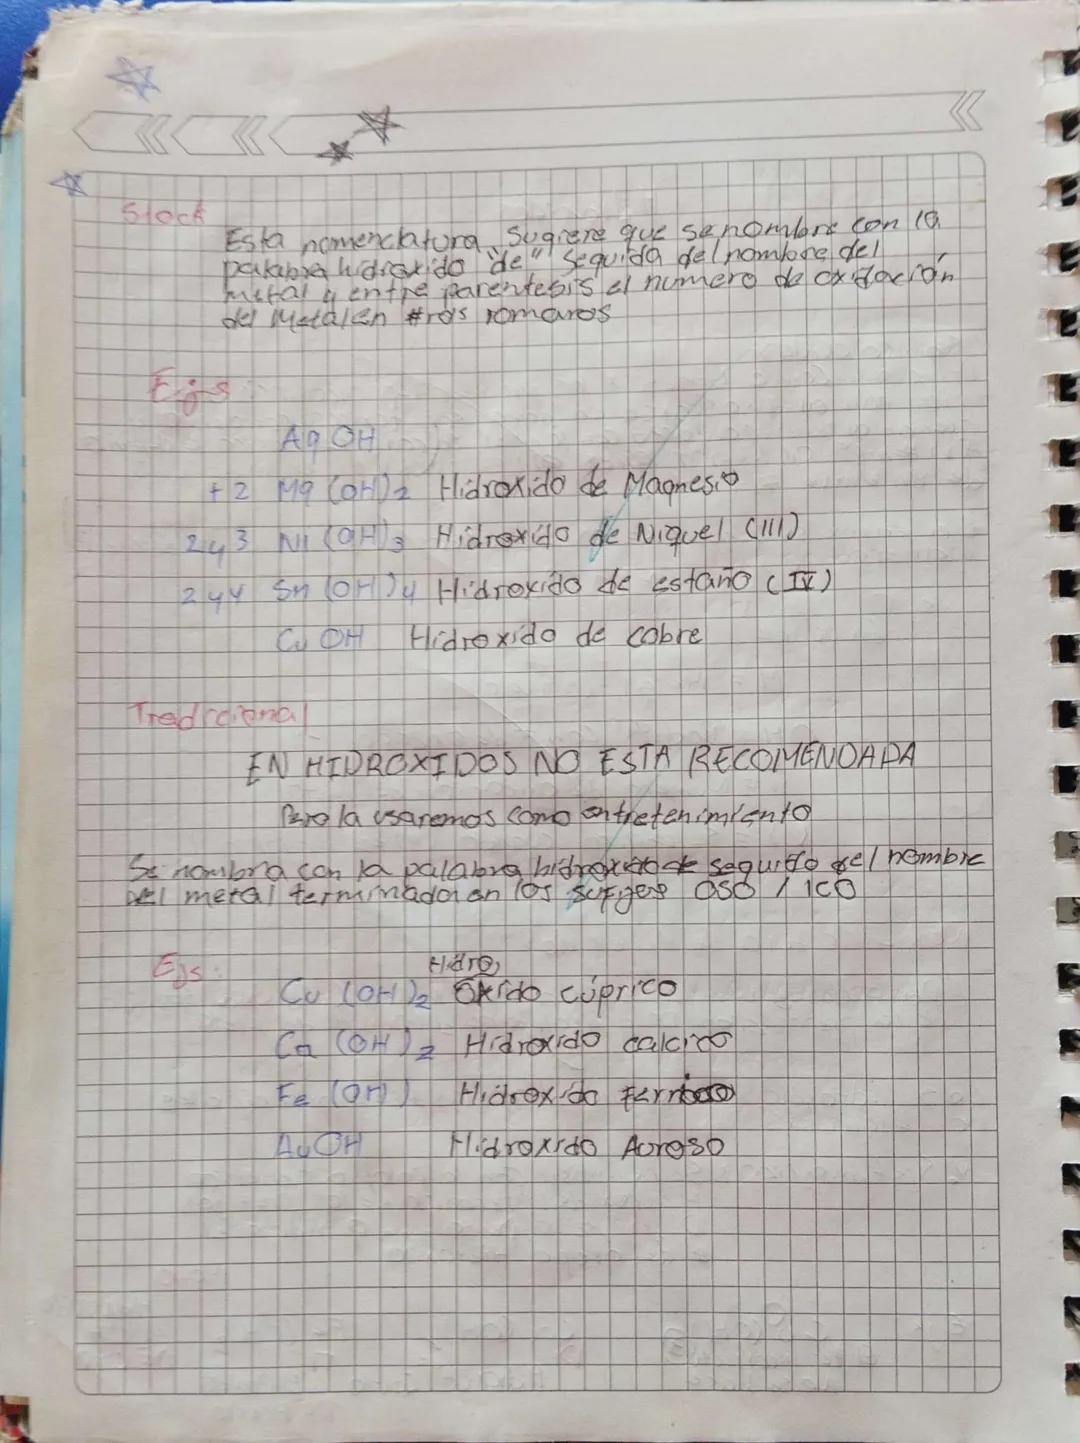 Stock
Esta nomenclatura, sugiere que se nombre con la
palabra hidroxido "de" seguida del nombre del
metal y entre parentesis el numero de oxidación
del Metal en #ros romanos
Ejs
Ag OH
+2 Mg (OH)2 Hidroxido de Magnesio
2 y 3 Ni (OH)3 Hidroxido de Niquel (III)
2 y 4 Sn (OH)4 Hidroxido de estaño (IV)
Cu OH Hidroxido de cobre
Tradicional
EN HIDROXIDOS NO ESTA RECOMENDADA
Pero la usaremos como entretenimiento
Se nombra con la palabra hidroxido de seguido del nombre
Del metal terminado en los OSO / ICO
Ejs: Hidro,
Cu (OH)2 Oxido cúprico
Ca (OH)2 Hidroxido calcico
Fe (OH) Hidroxido
AuOH Hidroxido Auroso